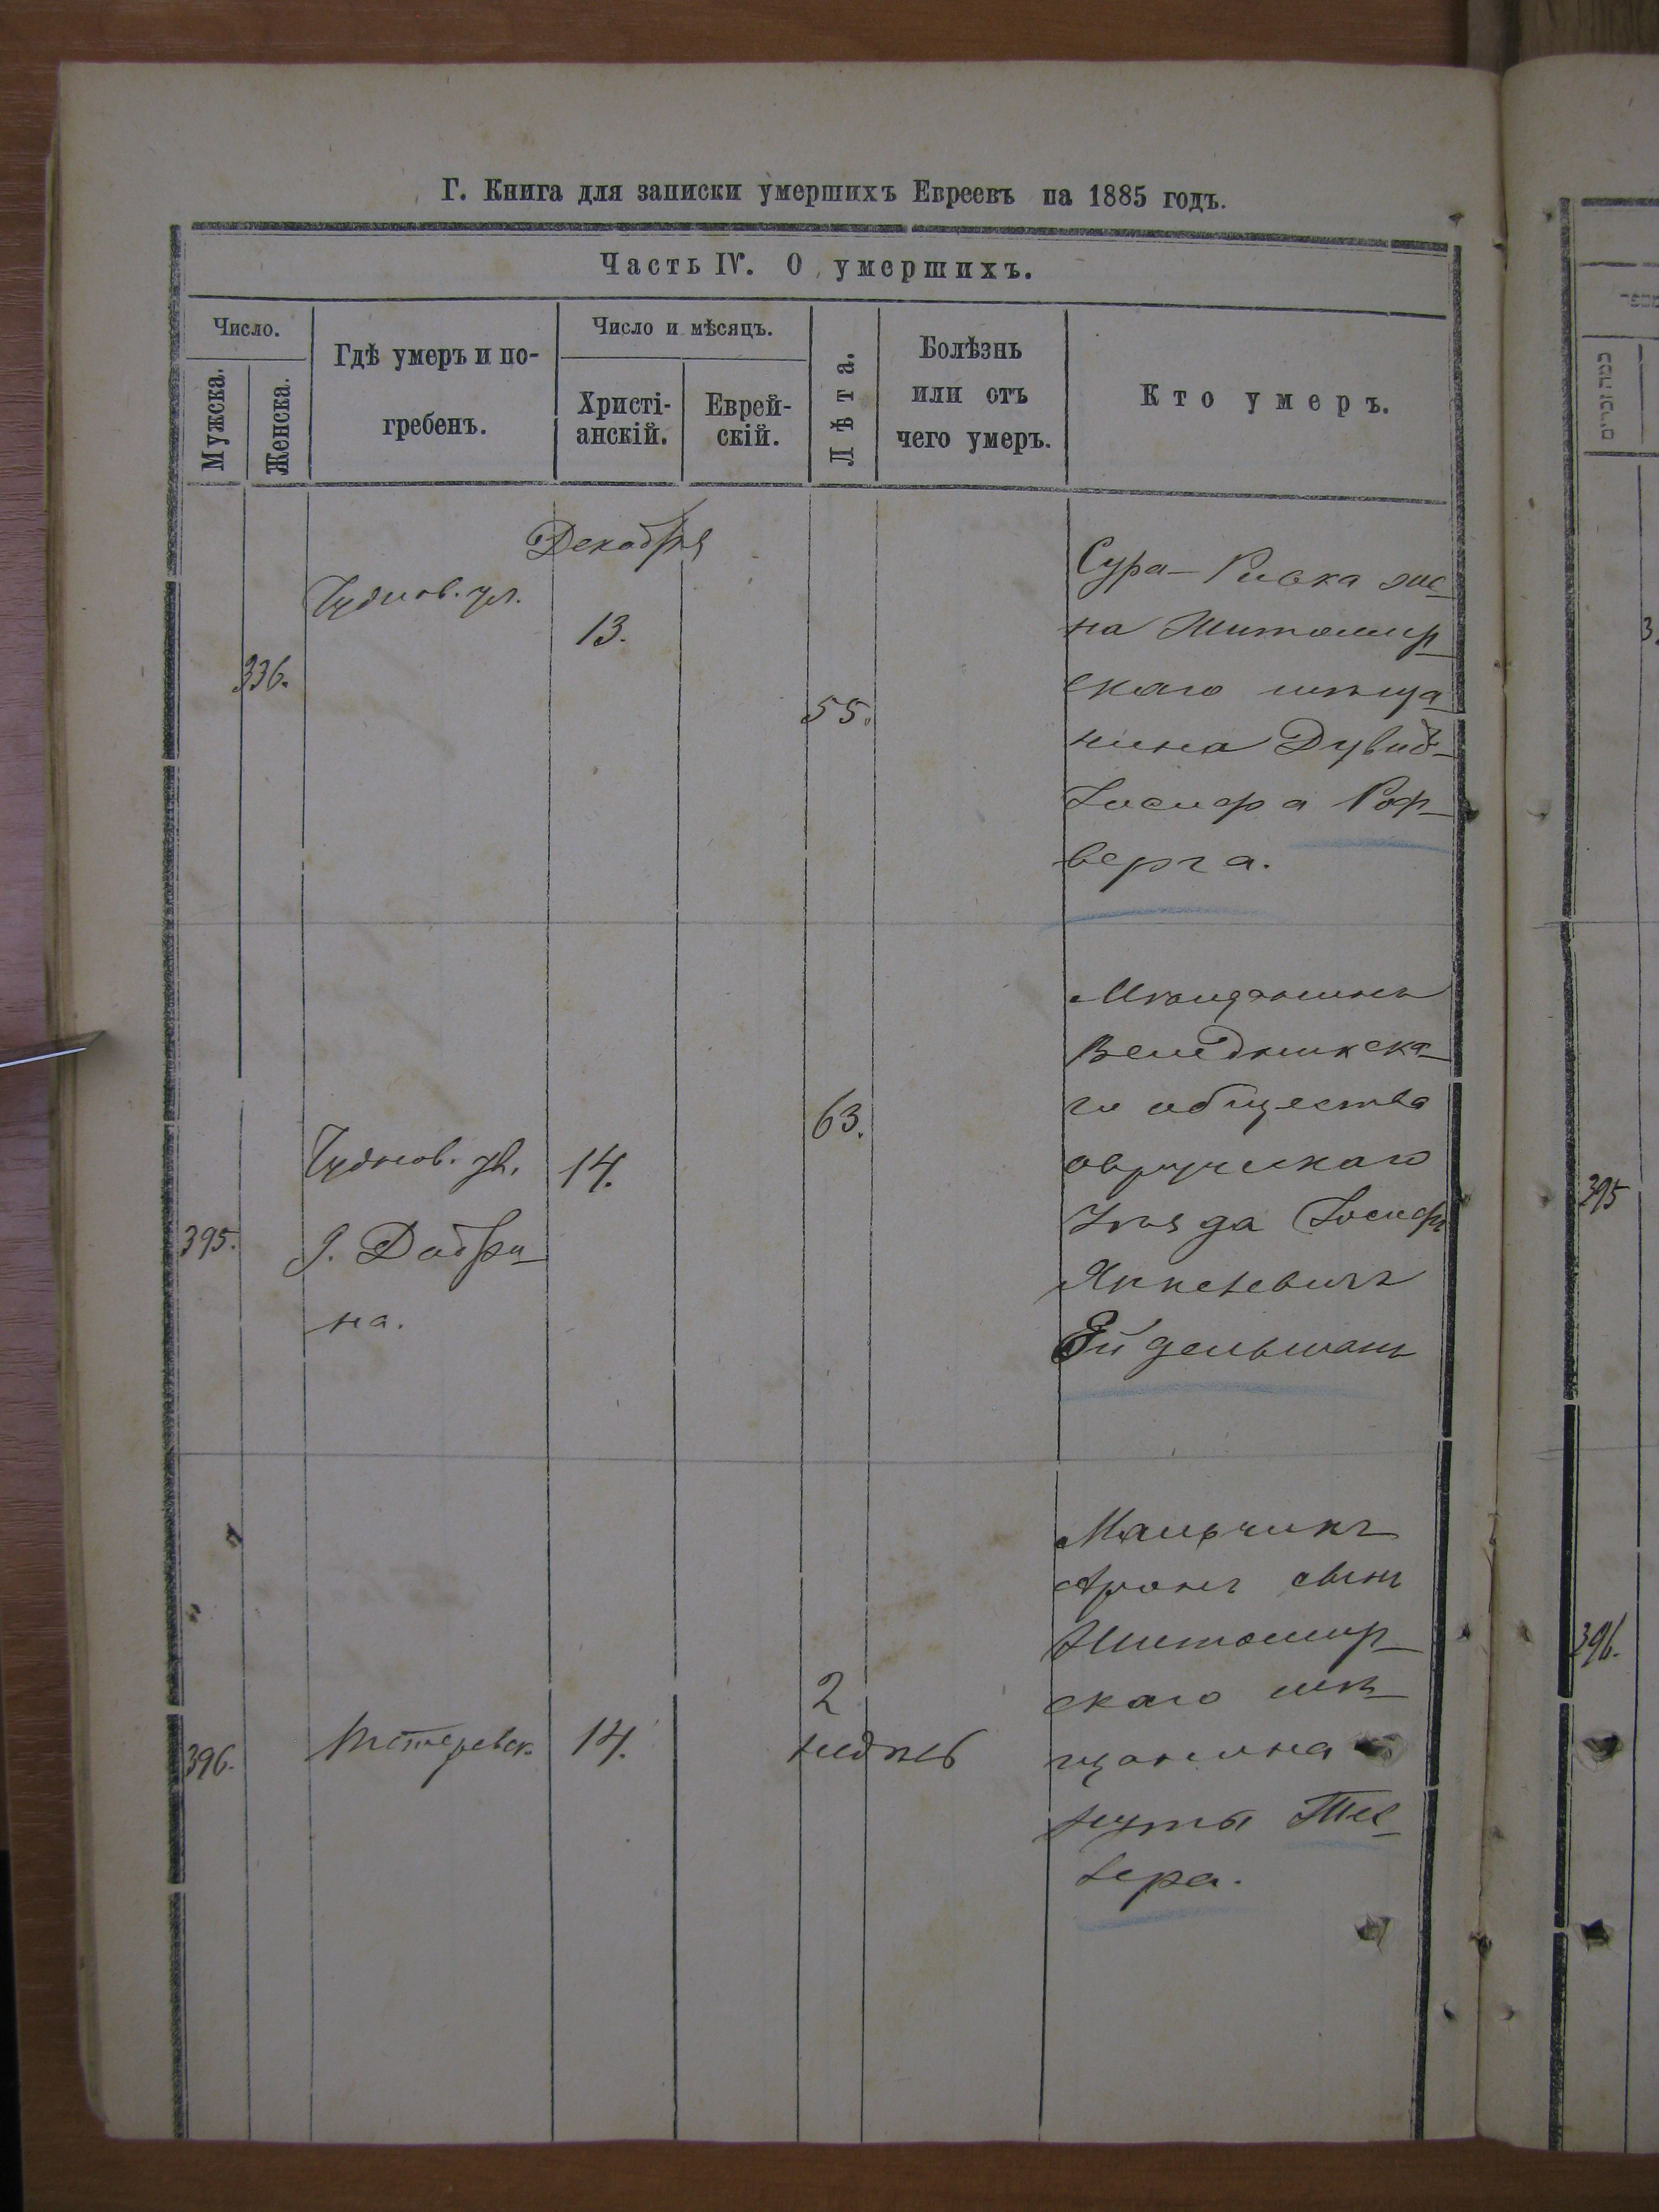 Г. Книга для записки умершихъ Евреевъ на 1885 годъ.
Часть IV. О умершихъ.
Число.
Мужска.
Женска.
Гдѣ умеръ и по-
гребенъ.
Число и мѣсяцъ.
Христі-
анскій.
Еврей-
скій.
Лѣта.
Болѣзнь
или отъ
чего умеръ.
Кто умеръ.
336.
Чуднов. ул.
Декабря
13.
55.
Сура-Ривка же-
на Житомир-
скаго мѣща
нина Дувид-
Іосифа Рор-
верга.
395.
Чуднов. ул.
д. Добри-
на.
14.
63.
Мѣщанинъ
Веледникска-
го общества
овручскаго
Уѣзда Іосифъ
Янкелевичъ
Ейдельманъ
396.
Тетеревск.
14.
2
недѣль
Мальчикъ
Аронъ сынъ
Житомир-
скаго мѣ-
щанина
395
396.